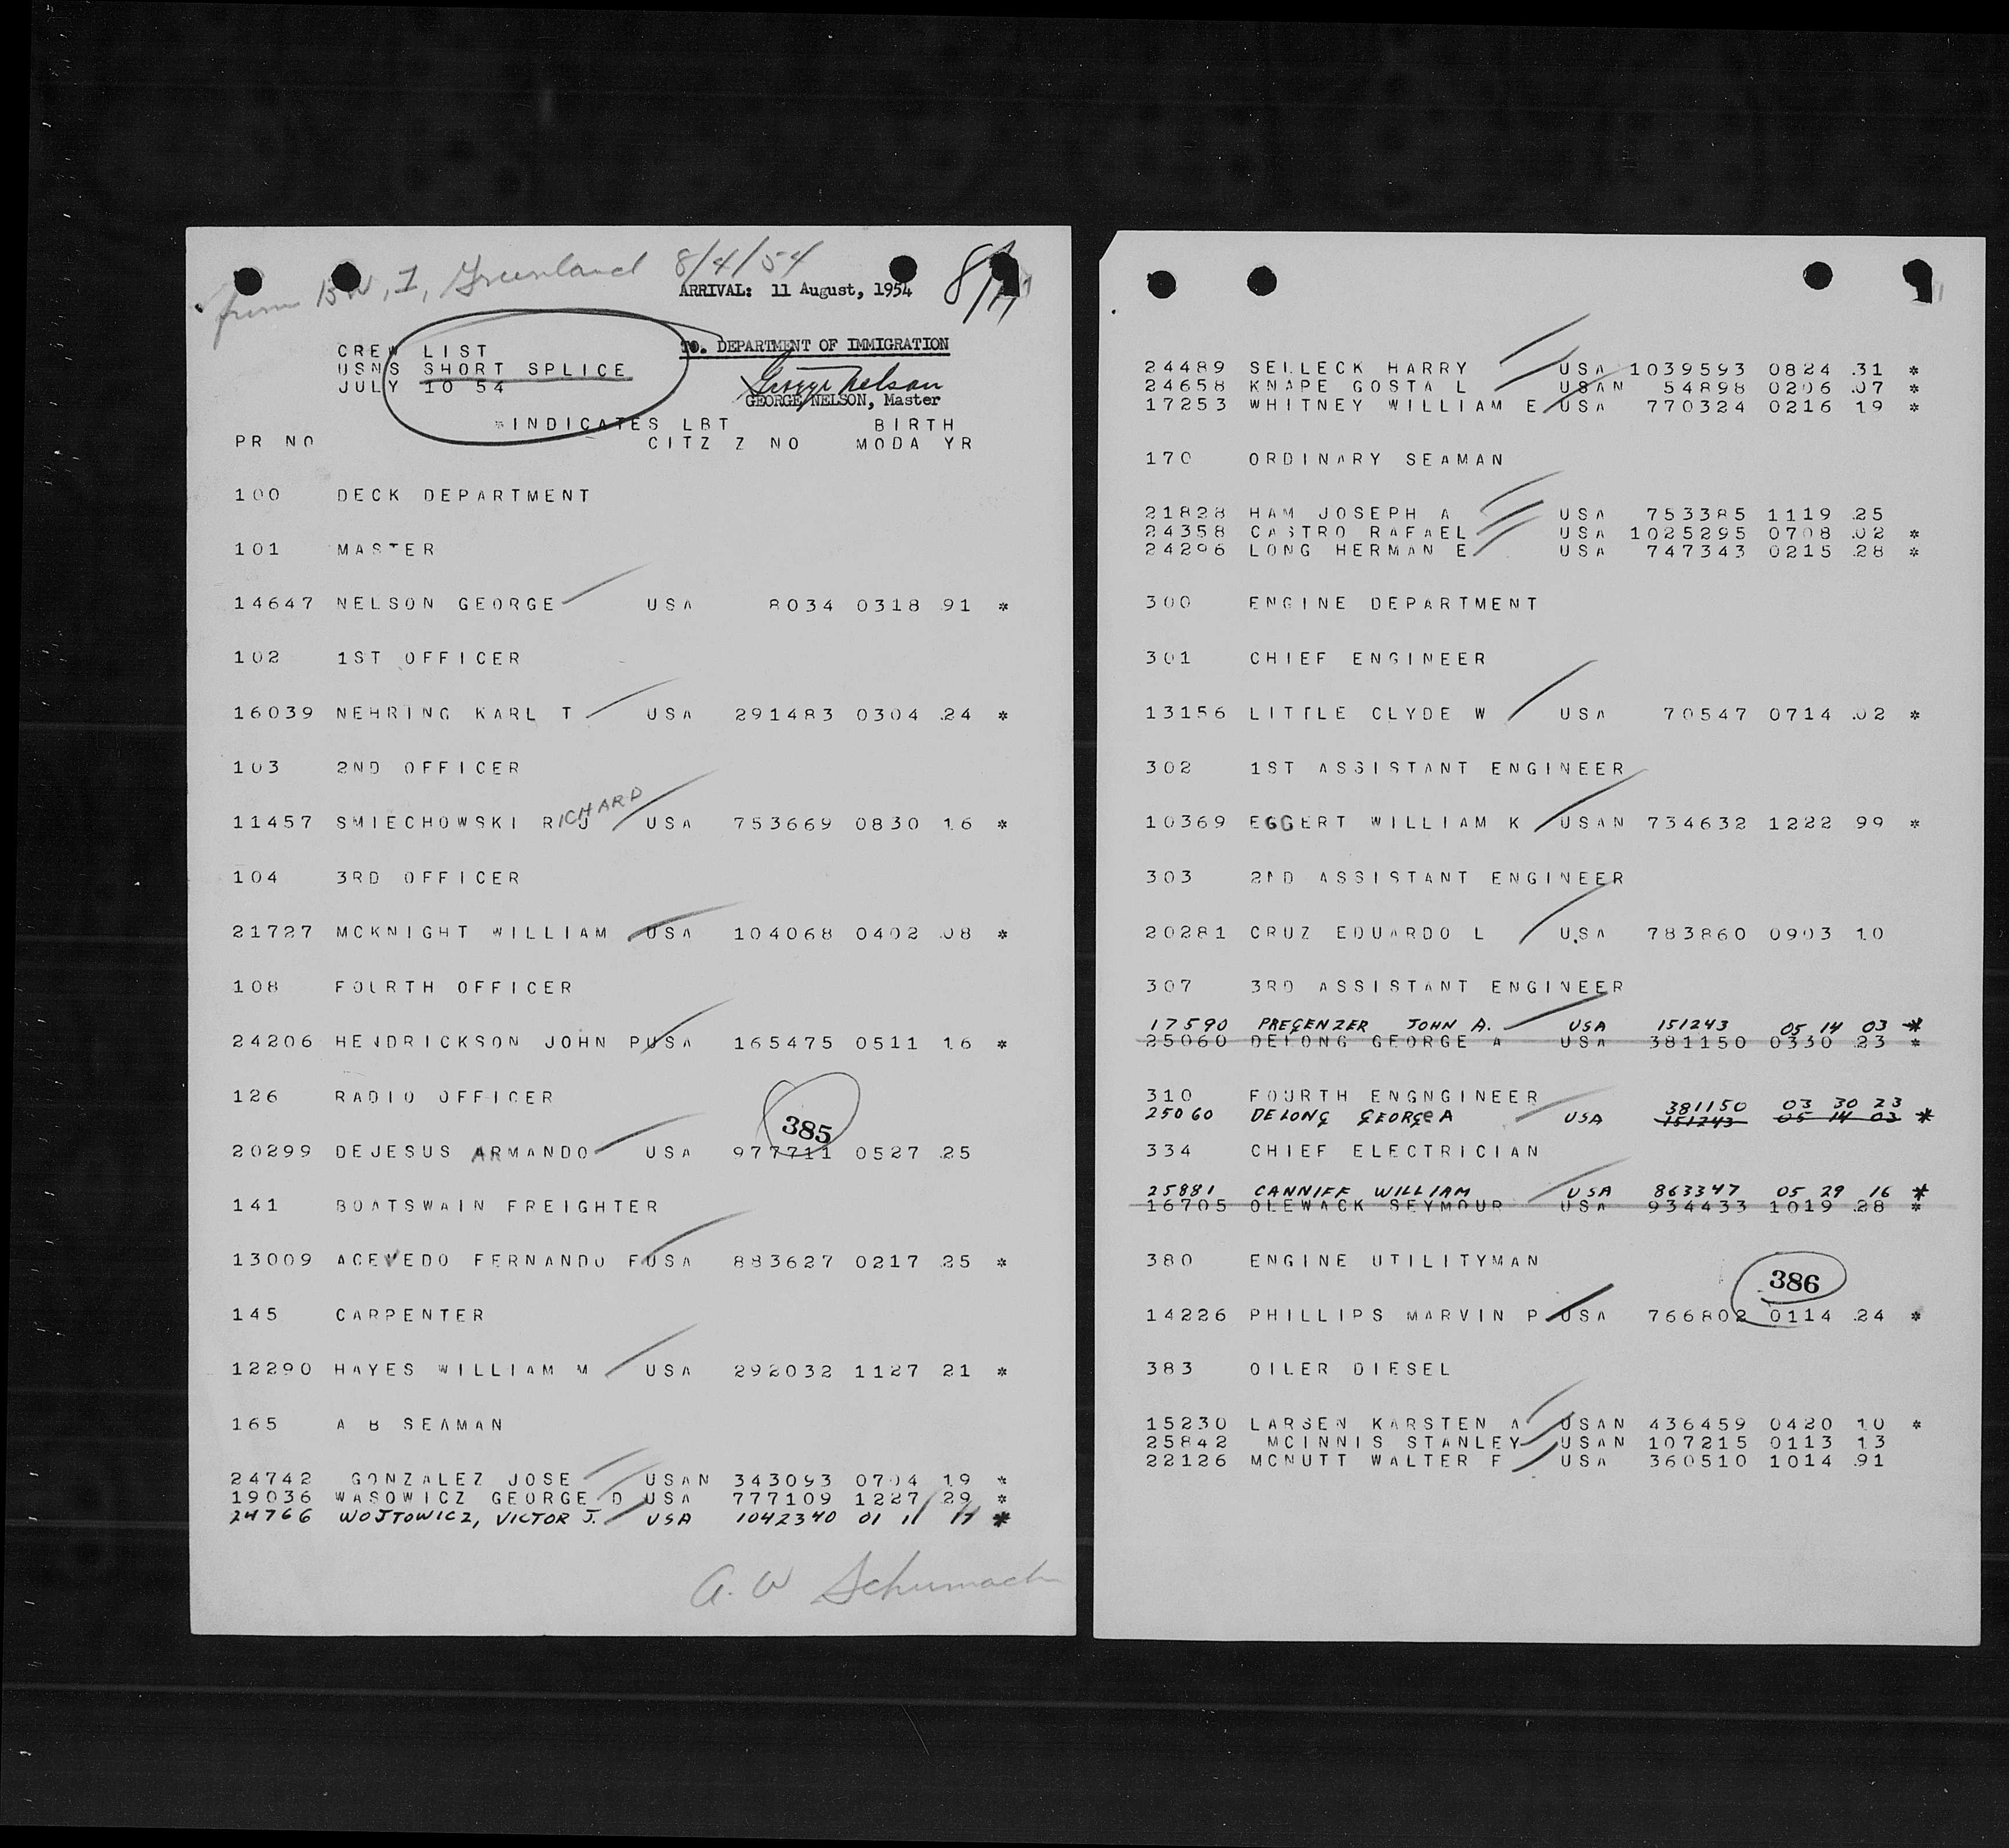 from BW, 1, Greenland 8/4/54
ARRIVAL: 11 August, 1954
CREW LIST
USNS SHORT SPLICE
JULY 10 54
TO. DEPARTMENT OF IMMIGRATION
George Nelson
GEORGE NELSON, Master
*INDICATES LBT BIRTH
PR NO CITZ Z NO MODA YR
100 DECK DEPARTMENT
101 MASTER
14647 NELSON GEORGE USA 8034 0318 91 *
102 1ST OFFICER
16039 NEHRING KARL T USA 291483 0304 24 *
103 2ND OFFICER
11457 SMIECHOWSKI RICHARD J USA 753669 0830 16 *
104 3RD OFFICER
21727 MCKNIGHT WILLIAM USA 104068 0402 08 *
108 FOURTH OFFICER
24206 HENDRICKSON JOHN P USA 165475 0511 16 *
126 RADIO OFFICER
385
20299 DEJESUS ARMANDO USA 977711 0527 25
141 BOATSWAIN FREIGHTER
13009 ACEVEDO FERNANDO F USA 883627 0217 25 *
145 CARPENTER
12290 HAYES WILLIAM M USA 292032 1127 21 *
165 A B SEAMAN
24742 GONZALEZ JOSE USAN 343093 0704 19 *
19036 WASOWICZ GEORGE D USA 777109 1227 29 *
24766 WOJTOWICZ, VICTOR J. USA 1042340 01 11 *
A. W Schumach
24489 SELLECK HARRY USA 1039593 0824 31 *
24658 KNAPE GOSTA L USAN 54898 0206 07 *
17253 WHITNEY WILLIAM E USA 770324 0216 19 *
170 ORDINARY SEAMAN
21828 HAM JOSEPH A USA 753385 1119 25
24358 CASTRO RAFAEL USA 1025295 0708 02 *
24296 LONG HERMAN E USA 747343 0215 28 *
300 ENGINE DEPARTMENT
301 CHIEF ENGINEER
13156 LITTLE CLYDE W USA 70547 0714 02 *
302 1ST ASSISTANT ENGINEER
10369 EGGERT WILLIAM K USAN 734632 1222 99 *
303 2ND ASSISTANT ENGINEER
20281 CRUZ EDUARDO L USA 783860 0903 10
307 3RD ASSISTANT ENGINEER
17590 PREGENZER JOHN A. USA 151243 05 14 03 *
25060 DELONG GEORGE A USA 381150 0330 23 *
310 FOURTH ENGNGINEER
381150 03 30 23
25060 DELONG GEORGE A USA 151243 05 14 03 *
334 CHIEF ELECTRICIAN
25881 CANNIFF WILLIAM USA 863347 05 29 16 *
16705 OLEWACK SEYMOUR USA 934433 1019 28 *
380 ENGINE UTILITYMAN
386
14226 PHILLIPS MARVIN P USA 766802 0114 24 *
383 OILER DIESEL
15230 LARSEN KARSTEN A USAN 436459 0420 10 *
25842 MCINNIS STANLEY USAN 107215 0113 13
22126 MCNUTT WALTER F USA 360510 1014 91